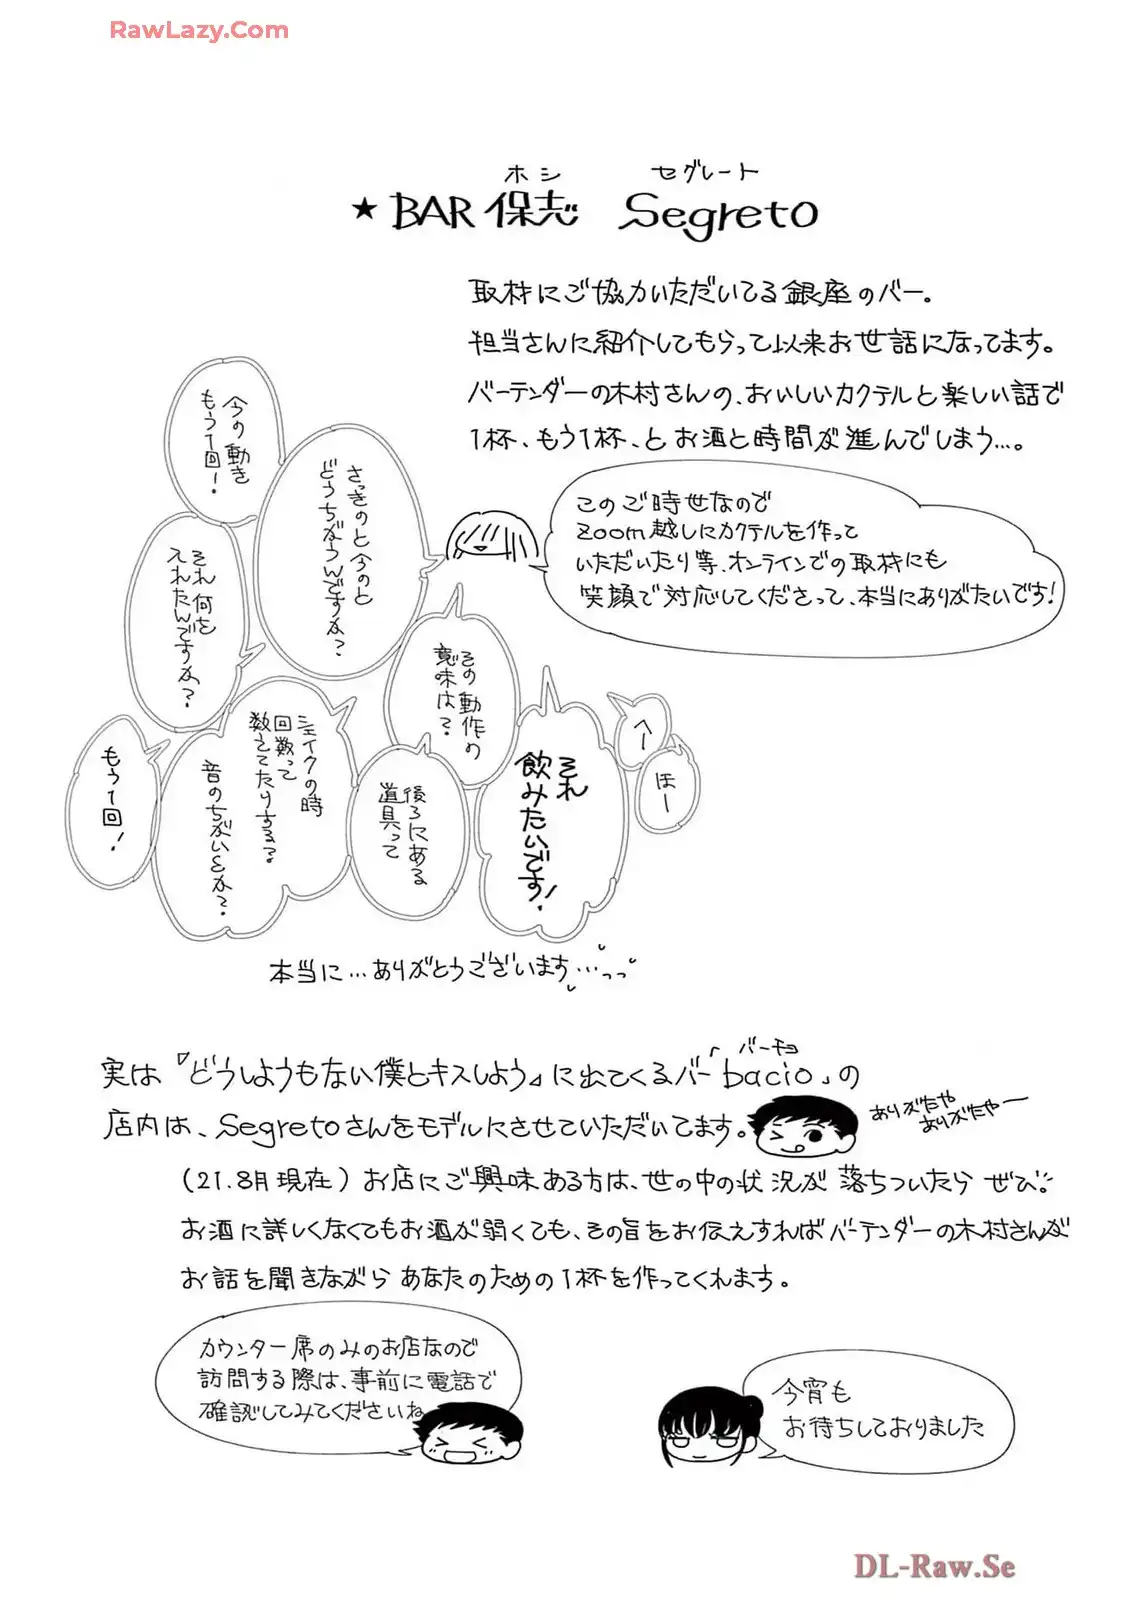 RawLazy.Com
ホシ セグレート
★BAR 保志 Segreto
取材にご協力いただいてる銀座のバー。
担当さんに紹介してもらって以来お世話になってます。
バーテンダーの木村さんの、おいしいカクテルと楽しい話で
1杯、もう1杯、とお酒と時間が進んでしまう…。
このご時世なので
zoom越しにカクテルを作って
いただいたり等、オンラインでの取材にも
笑顔で対応してくださって、本当にありがたいです!
さっきのと今のと
どうちがうんですか?
今の動き
もう1回!
それ何を
入れたんですか?
その動作の
意味は?
へー
ほー
それ
飲みたいです!
後ろにある
道具って
シェイクの時
回数って
数えてたりする?
音のちがいとか?
もう1回!
本当に…ありがとうございます…
実は『どうしようもない僕とキスしよう』に出てくるバー「bacio」の
バーチョ
店内は、Segretoさんをモデルにさせていただいてます。
ありがたや
ありがたやー
(21.8月現在)お店にご興味ある方は、世の中の状況が落ちついたらぜひ!
お酒に詳しくなくてもお酒が弱くても、その旨をお伝えすればバーテンダーの木村さんが
お話を聞きながらあなたのための1杯を作ってくれます。
カウンター席のみのお店なので
訪問する際は、事前に電話で
確認してみてくださいね
今宵も
お待ちしておりました
DL-Raw.Se